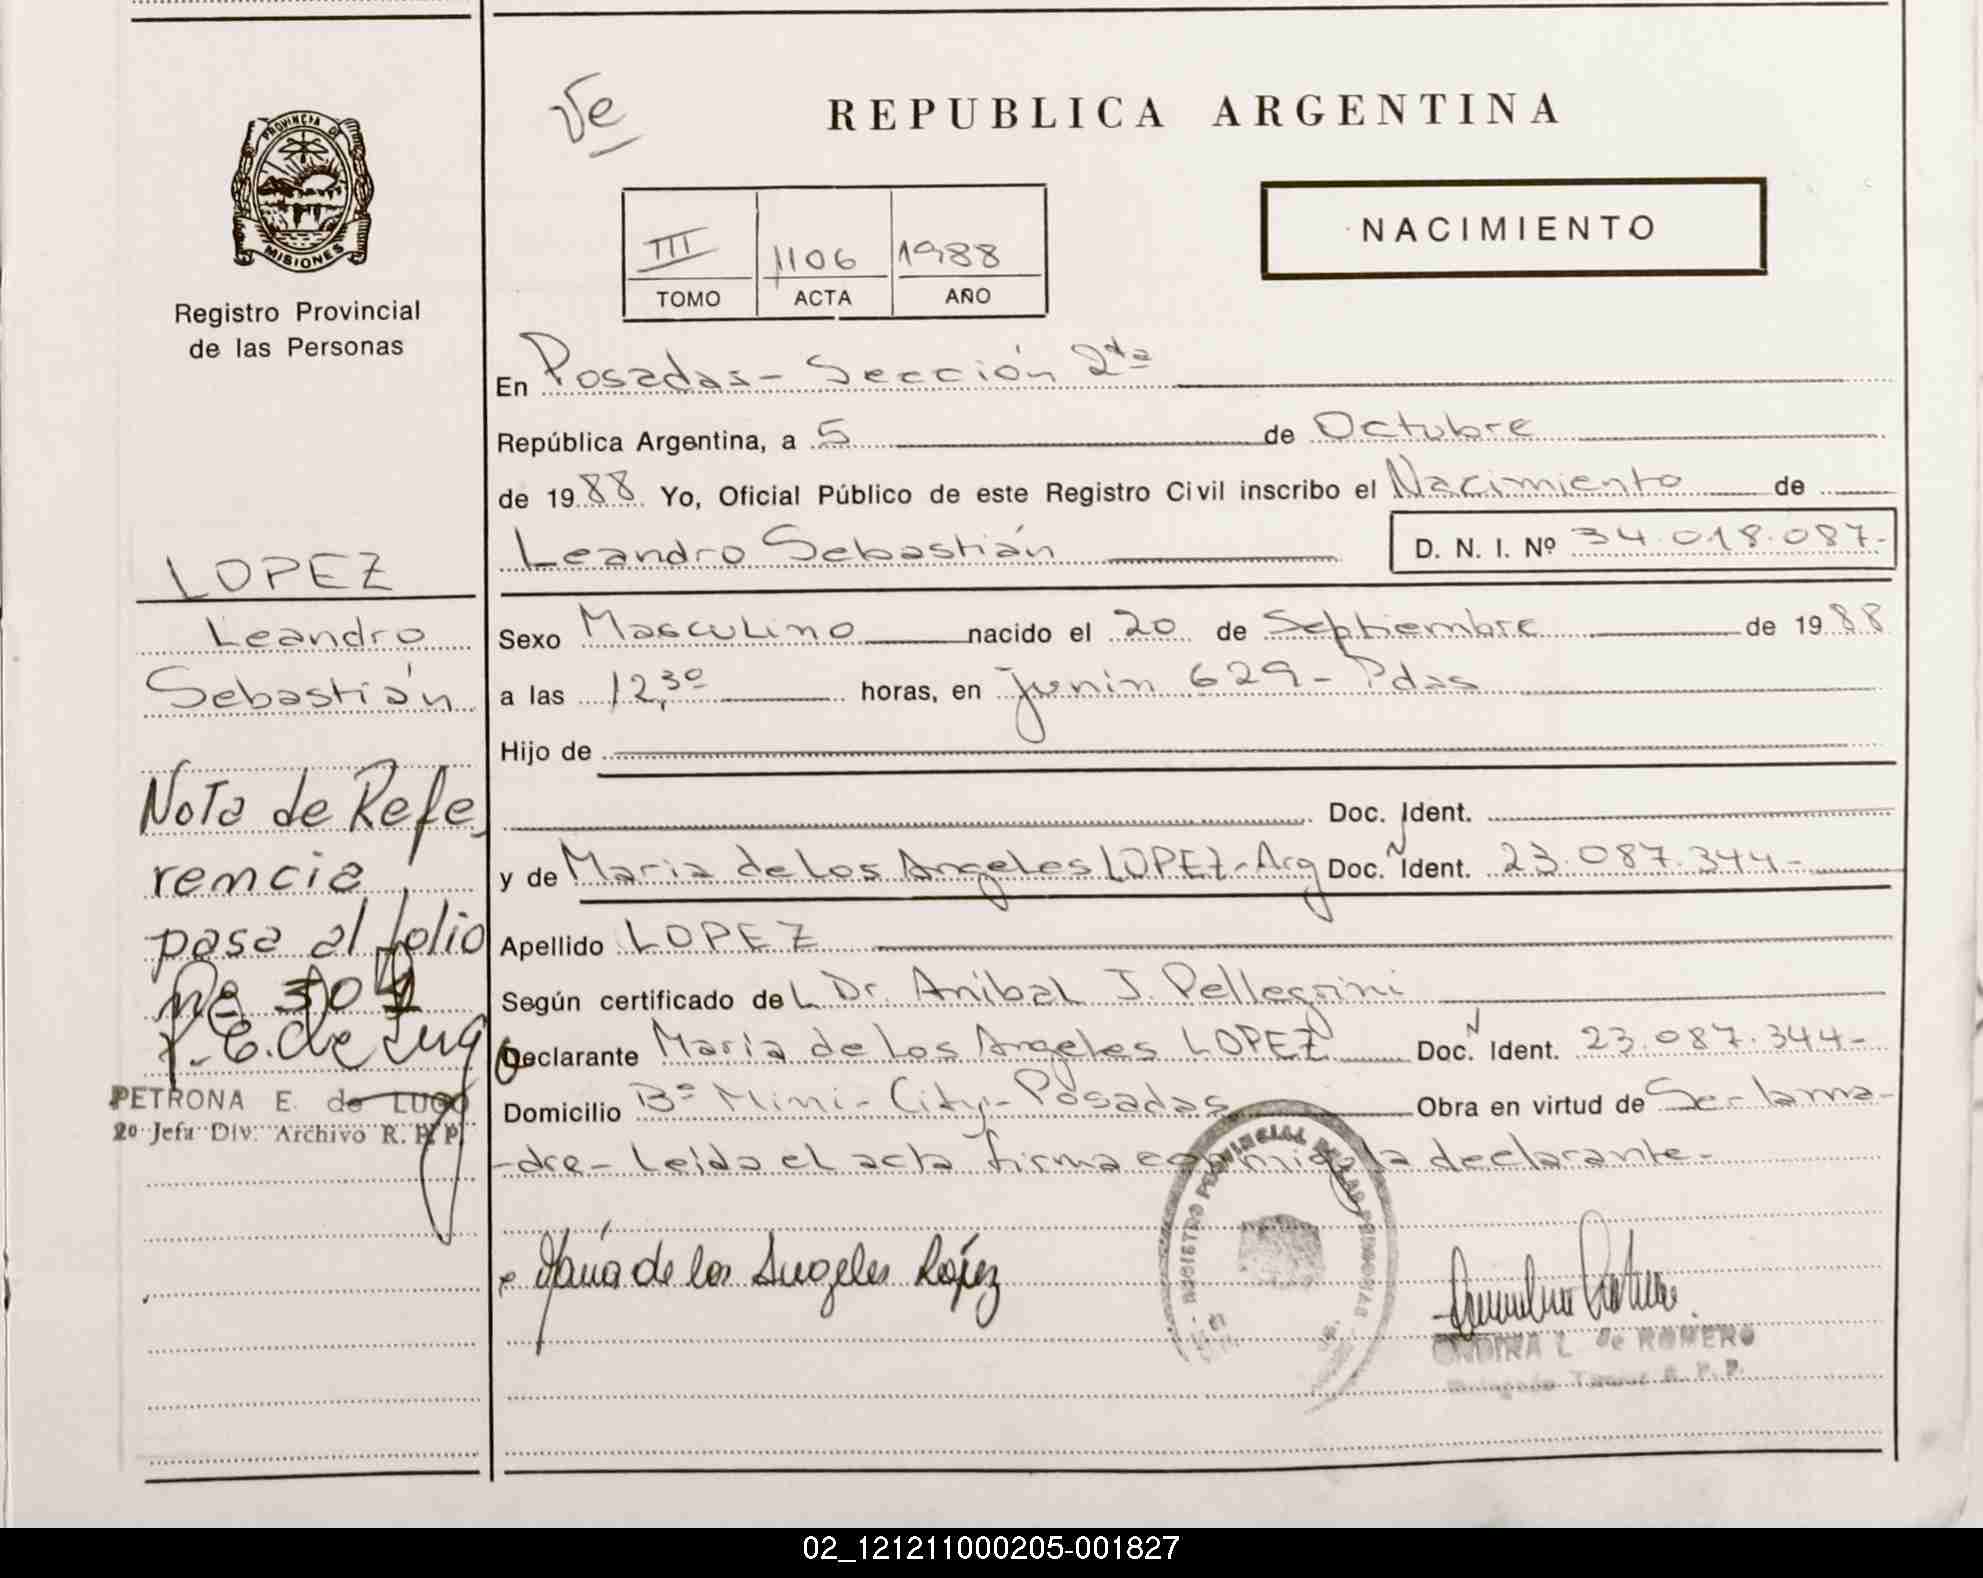 PROVINCIA D
MISIONES
Registro Provincial
de las Personas
LOPEZ
Leandro
Sebastián
Nota de Refe
rencia
pasa al folio
Nº 304
PETRONA E. de LUGO
2º Jefa Div. Archivo R. P. P.
Ve
REPUBLICA ARGENTINA
NACIMIENTO
III 1106 1988
TOMO ACTA AÑO
En Posadas - Sección 2da
República Argentina, a 5 de Octubre
de 1988. Yo, Oficial Público de este Registro Civil inscribo el Nacimiento de
Leandro Sebastián D. N. I. Nº 34.018.087-
Sexo Masculino nacido el 20 de Septiembre de 1988
a las 12,30 horas, en Junin 629 - Pdas
Hijo de
Doc. Ident.
y de Maria de Los Angeles LOPEZ - Arg Doc. N Ident. 23.087.344-
Apellido LOPEZ
Según certificado deL Dr. Anibal J. Pellegrini
Declarante Maria de Los Angeles LOPEZ Doc. N Ident. 23.087.344-
Domicilio Bº Mini-City - Posadas Obra en virtud de Ser la ma-
-dre - Leida el acta firma conmigo la declarante -
María de los Angeles López
REGISTRO PROVINCIAL DE LAS PERSONAS
L. de ROMERO
R. P. P.
02_121211000205-001827